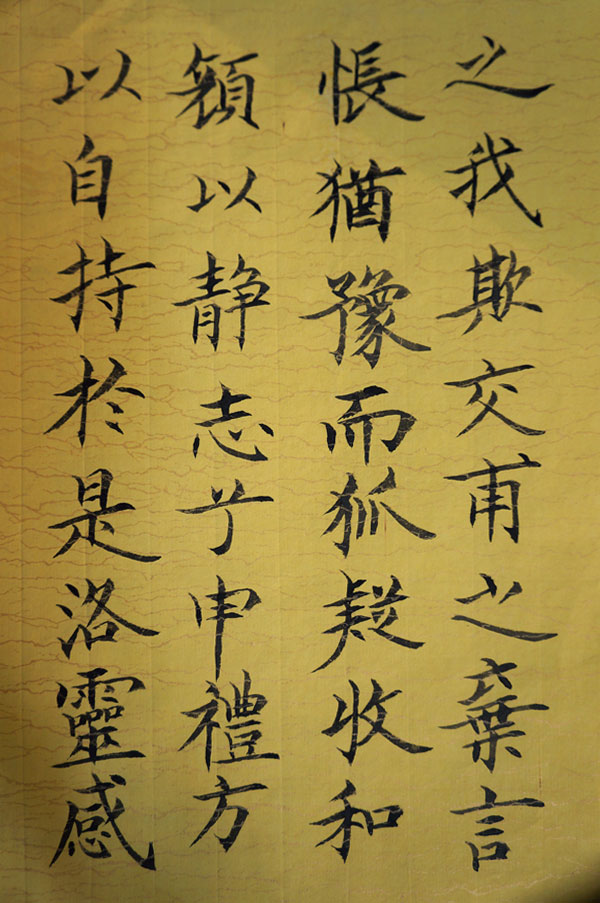 之我欺交甫之棄言
悵猶豫而狐疑收和
顏以靜志兮申禮方
以自持於是洛靈感